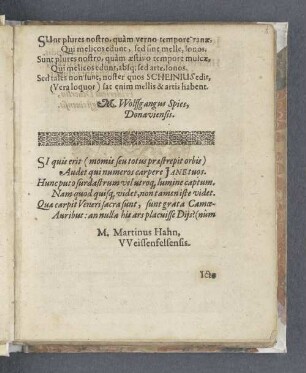 SUnt plures nostro, quàm verno tempore ranæ,
Qui melicos edunt, sed sine melle, sonos.
Sunt plures nostro, quàm æstivo tempore muscæ,
Qui melicos edunt, absq; sed arte, sonos.
Sed tales non sunt, noster quos SCHEINIUS edit,
(Vera loquor) sat enim mellis & artis habent.
M. Wolffgangus Spies,
Donaviensis.
SI quis erit (momis seu totus præstrepit orbis)
Audet qui numeros carpere JANE tuos.
Hunc puto surdastrum vel utroq; lumine captum.
Nam quod quisq; videt, non tamen iste videt.
Quæ carpit Veneri sacra sunt, sunt grata Camœ-
Auribus: an nulla his ars placuisse Dijs? (nium
M. Martinus Hahn,
VVeissenfelsensis.